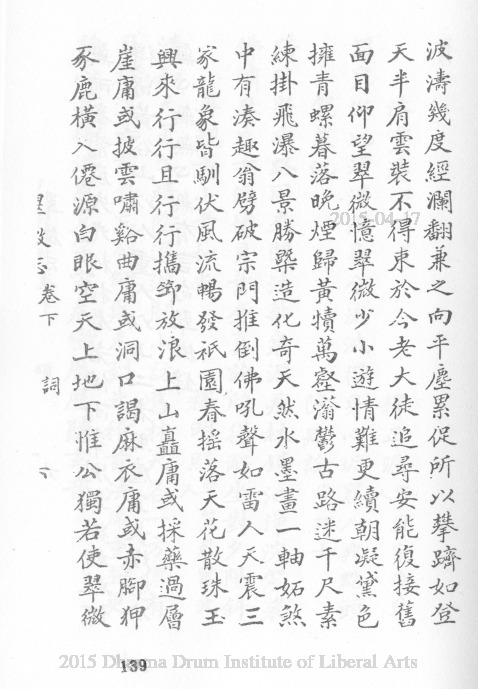 波濤幾度經瀾翻兼之向平塵累促所以攀躋如登
天半肩雲裝不得東於今老大徒追尋安能復接舊
面目仰望翠微憶翠微少小遊情難更續朝凝黛色
擁青螺暮落晚煙歸黃犢萬壑滃鬱古路迷千尺素
練掛飛瀑八景勝槩造化奇天然水墨畫一軸妬煞
中有湊趣翁劈破宗門推倒佛吼聲如雷人天震三
家龍象皆馴伏風流暢發祇園春搖落天花散珠玉
興來行行且行行攜笻放浪上山矗庸或採藥過層
崖庸或披雲嘯谿曲庸或洞口謁麻衣庸或赤腳狎
豕鹿橫入僊源白眼空天上地下惟公獨若使翠微
志 卷下 詞 六
139
2015-04-17
2015 Dharma Drum Institute of Liberal Arts